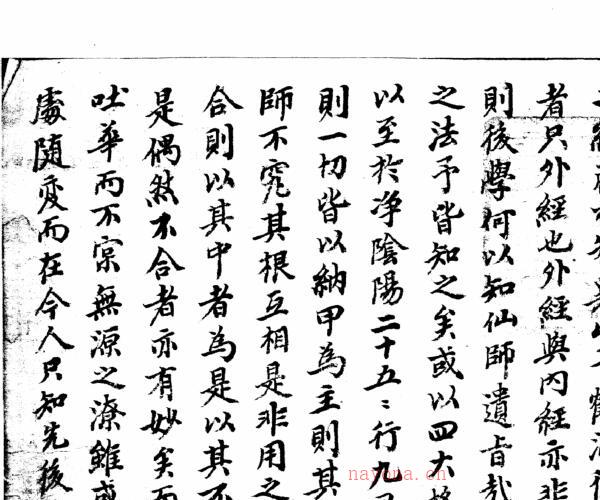 者只外經也外經與内經亦非
則後學何以知仙師遺旨哉
之法予皆知之矣或以四大
以至於净陰陽二十五二行九
則一切皆以納甲為主則其
師不究其根互相是非用之
合則以其中者為是以其不
是偶然不合者亦有妙矣而
吐華而不宗無源之潦雖或
處随変而在今人只知先後
nayona.cn